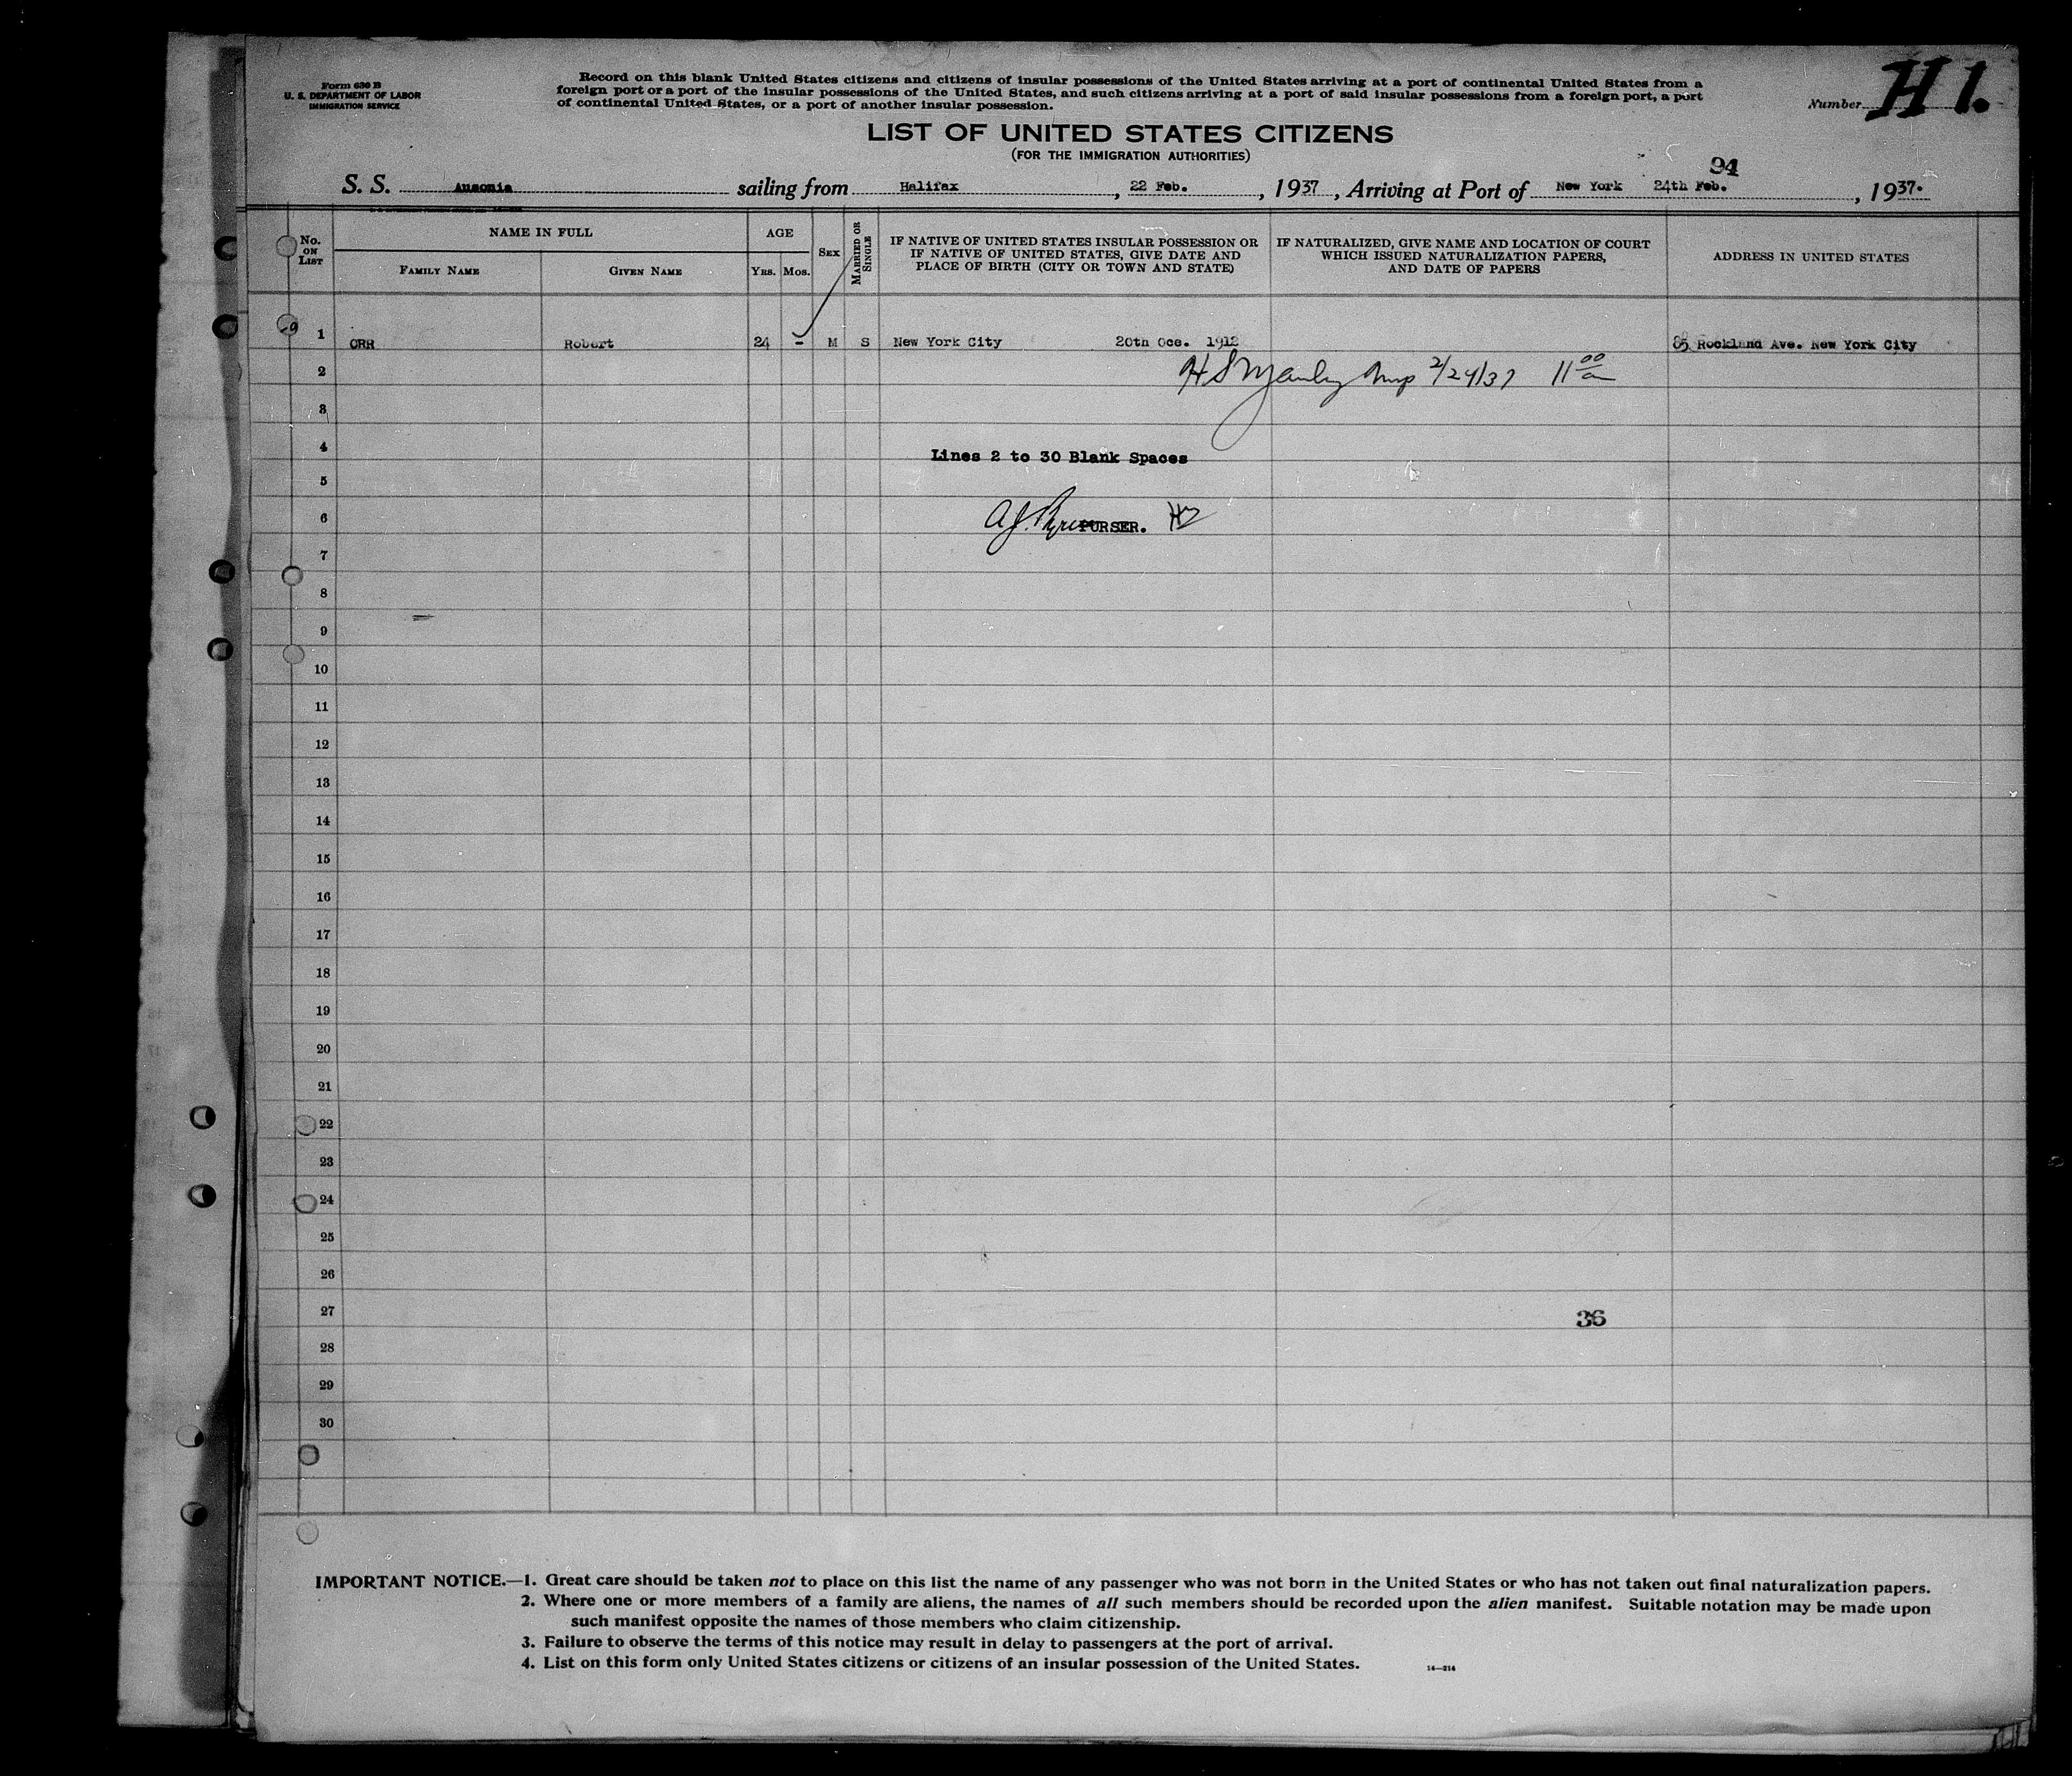 Form 630 B
U. S. DEPARTMENT OF LABOR
IMMIGRATION SERVICE
Record on this blank United States citizens and citizens of insular possessions of the United States arriving at a port of continental United States from a
foreign port or a port of the insular possessions of the United States, and such citizens arriving at a port of said insular possessions from a foreign port, a port
of continental United States, or a port of another insular possession.
Number H 1.
LIST OF UNITED STATES CITIZENS
(FOR THE IMMIGRATION AUTHORITIES)
94
S. S. Ausonia sailing from Halifax, 22 Feb., 1937, Arriving at Port of New York 24th Feb., 1937.
No. ON LIST
NAME IN FULL
FAMILY NAME
GIVEN NAME
AGE
YRS.
MOS.
SEX
MARRIED OR SINGLE
IF NATIVE OF UNITED STATES INSULAR POSSESSION OR
IF NATIVE OF UNITED STATES, GIVE DATE AND
PLACE OF BIRTH (CITY OR TOWN AND STATE)
IF NATURALIZED, GIVE NAME AND LOCATION OF COURT
WHICH ISSUED NATURALIZATION PAPERS,
AND DATE OF PAPERS
ADDRESS IN UNITED STATES
1 ORR Robert 24 - M S New York City 20th Oce. 1912 85 Rockland Ave. New York City
2 2/24/37 11 00 am
3
4 Lines 2 to 30 Blank Spaces
5
6 PURSER.
7
8
9
10
11
12
13
14
15
16
17
18
19
20
21
22
23
24
25
26
27 36
28
29
30
IMPORTANT NOTICE.—1. Great care should be taken not to place on this list the name of any passenger who was not born in the United States or who has not taken out final naturalization papers.
2. Where one or more members of a family are aliens, the names of all such members should be recorded upon the alien manifest. Suitable notation may be made upon
such manifest opposite the names of those members who claim citizenship.
3. Failure to observe the terms of this notice may result in delay to passengers at the port of arrival.
4. List on this form only United States citizens or citizens of an insular possession of the United States.
14—214